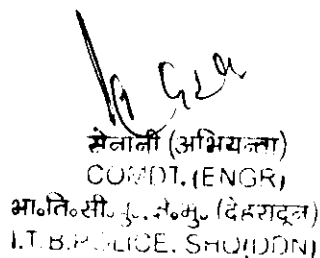 सेनानी (अभियन्ता)
COMDT. (ENGR)
भा०ति०सी०पु० से०मु० (देहरादून)
I.T.B.POLICE. SHQ(DDN)